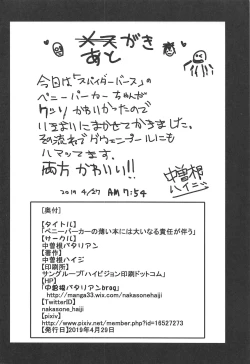 メスがき
あと
今日は「スパイダーバース」の
ペニーパーカーちゃんが
クッソかわいかったので
いきおいにまかせてかきました。
その流れでグウェンプールにも
ハマってます。
両方かわいい!!
2019 4/27 AM 7:54
中曽根
ハイジ
[奥付]
【タイトル】
「ペニーパーカーの薄い本には大いなる責任が伴う」
【サークル】
中曽根バタリアン
【著作】
中曽根ハイジ
【印刷所】
サングループ「ハイビジョン印刷ドットコム」
【HP】
「中曽根バタリアンbrog」
http://manga33.wix.com/nakasonehaiji
【TwitterID】
nakasone_haiji
【pixiv】
http://www.pixiv.net/member.php?id=16527273
【発行日】2019年4月29日